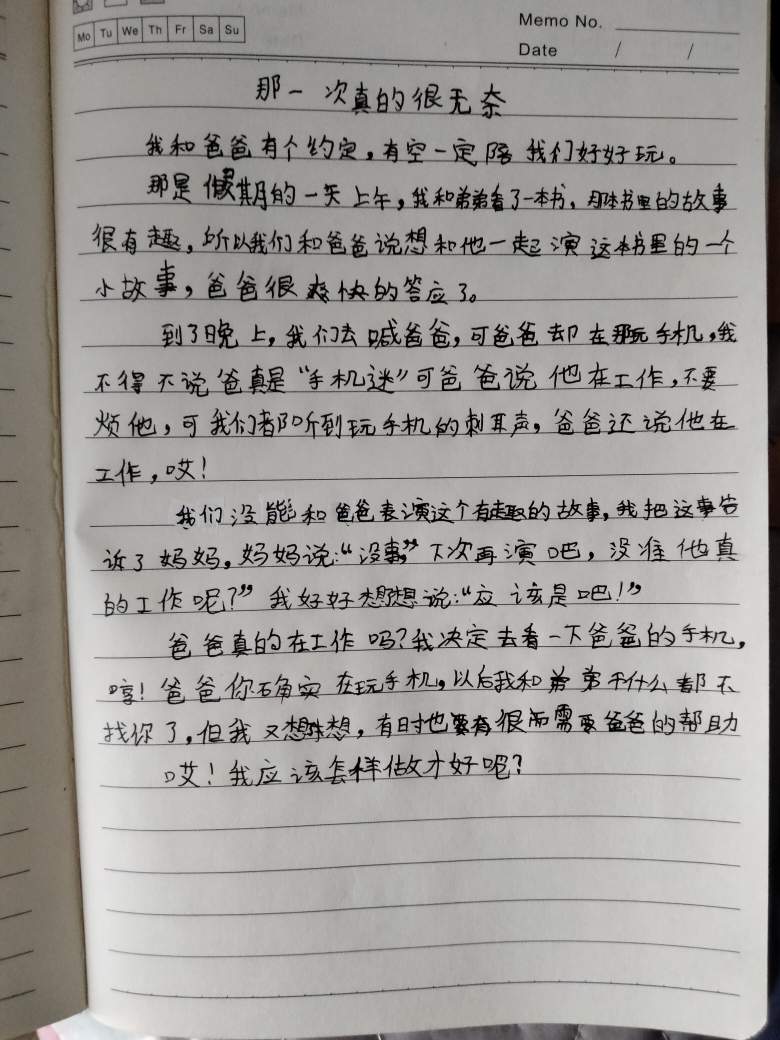 Mo Tu We Th Fr Sa Su
Memo No.
Date / /
那一次真的很无奈
我和爸爸有个约定，有空一定陪我们好好玩。
那是假期的一天上午，我和弟弟看了一本书，那本书里的故事
很有趣，所以我们和爸爸说想和他一起演这本书里的一个
小故事，爸爸很爽快的答应了。
到了晚上，我们去喊爸爸，可爸爸却在玩手机，我
不得不说爸真是“手机迷”可爸爸说他在工作，不要
烦他，可我们都听到玩手机的刺耳声，爸爸还说他在
工作，哎！
我们没能和爸爸表演这个有趣的故事，我把这事告
诉了妈妈，妈妈说：“没事，”下次再演吧，没准他真
的工作呢？”我好好想想说：“应该是吧！”
爸爸真的在工作吗？我决定去看一下爸爸的手机，
哼！爸爸你确实在玩手机，以后我和弟弟干什么都不
找你了，但我又想想，有时也要有很需要爸爸的帮助
哎！我应该怎样做才好呢？